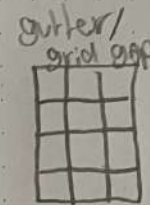 gutter/
grid gap